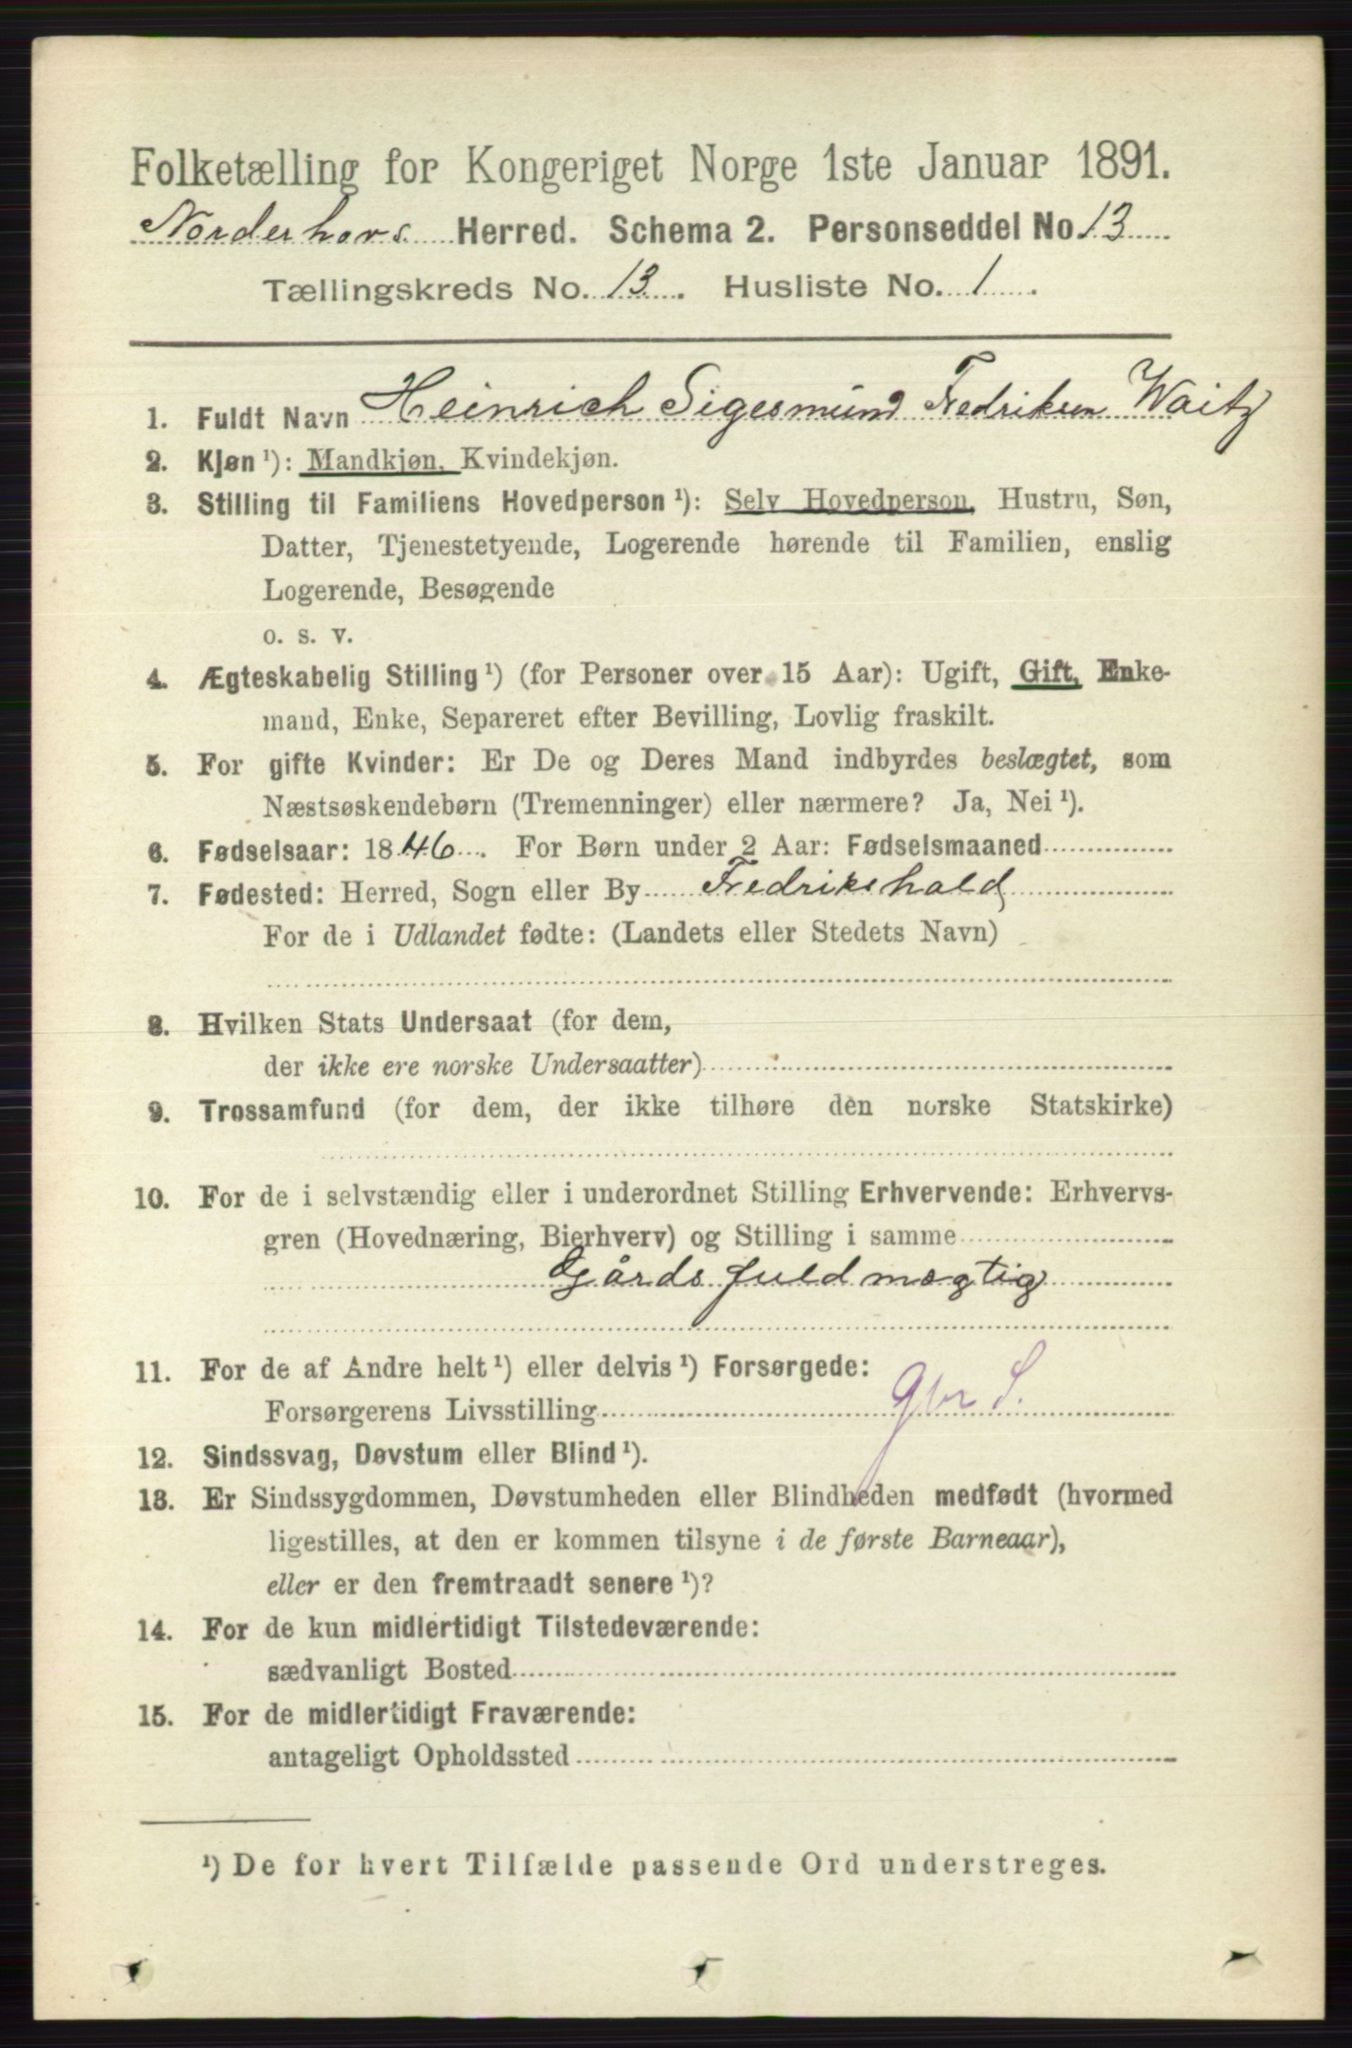 Folketælling for Kongeriget Norge 1ste Januar 1891.
Norderhovs Herred. Schema 2. Personseddel No. 13
Tællingskreds No. 13. Husliste No. 1
1. Fuldt Navn Heinrich Sigesmund Fredriksen Waitz
2. Kjøn ¹): Mandkjøn, Kvindekjøn.
3. Stilling til Familiens Hovedperson ¹): Selv Hovedperson, Hustru, Søn,
Datter, Tjenestetyende, Logerende hørende til Familien, enslig
Logerende, Besøgende
o. s. v.
4. Ægteskabelig Stilling ¹) (for Personer over 15 Aar): Ugift, Gift, Enke-
mand, Enke, Separeret efter Bevilling, Lovlig fraskilt.
5. For gifte Kvinder: Er De og Deres Mand indbyrdes beslægtet, som
Næstsøskendebørn (Tremenninger) eller nærmere? Ja, Nei ¹).
6. Fødselsaar: 1846. For Børn under 2 Aar: Fødselsmaaned
7. Fødested: Herred, Sogn eller By Fredrikshald
For de i Udlandet fødte: (Landets eller Stedets Navn)
8. Hvilken Stats Undersaat (for dem,
der ikke ere norske Undersaatter)
9. Trossamfund (for dem, der ikke tilhøre den norske Statskirke)
10. For de i selvstændig eller i underordnet Stilling Erhvervende: Erhvervs-
gren (Hovednæring, Bierhverv) og Stilling i samme
Gårdsfuldmægtig
11. For de af Andre helt ¹) eller delvis ¹) Forsørgede:
Forsørgerens Livsstilling gbr S.
12. Sindssvag, Døvstum eller Blind ¹).
13. Er Sindssygdommen, Døvstumheden eller Blindheden medfødt (hvormed
ligestilles, at den er kommen tilsyne i de første Barneaar),
eller er den fremtraadt senere ¹)?
14. For de kun midlertidigt Tilstedeværende:
sædvanligt Bosted
15. For de midlertidigt Fraværende:
antageligt Opholdssted
¹) De for hvert Tilfælde passende Ord understreges.